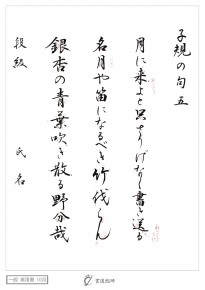 子規の句五
月に来よと只さりげなく書き送る
名月や笛になるべき竹伐らん
銀杏の青葉吹き散る野分哉
段級 氏名